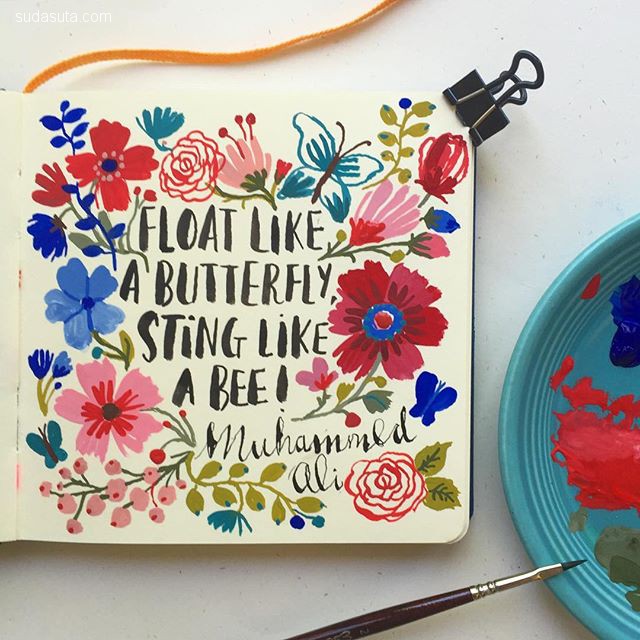 sudasuta.com
FLOAT LIKE
A BUTTERFLY,
STING LIKE
A BEE!
Muhammed
Ali